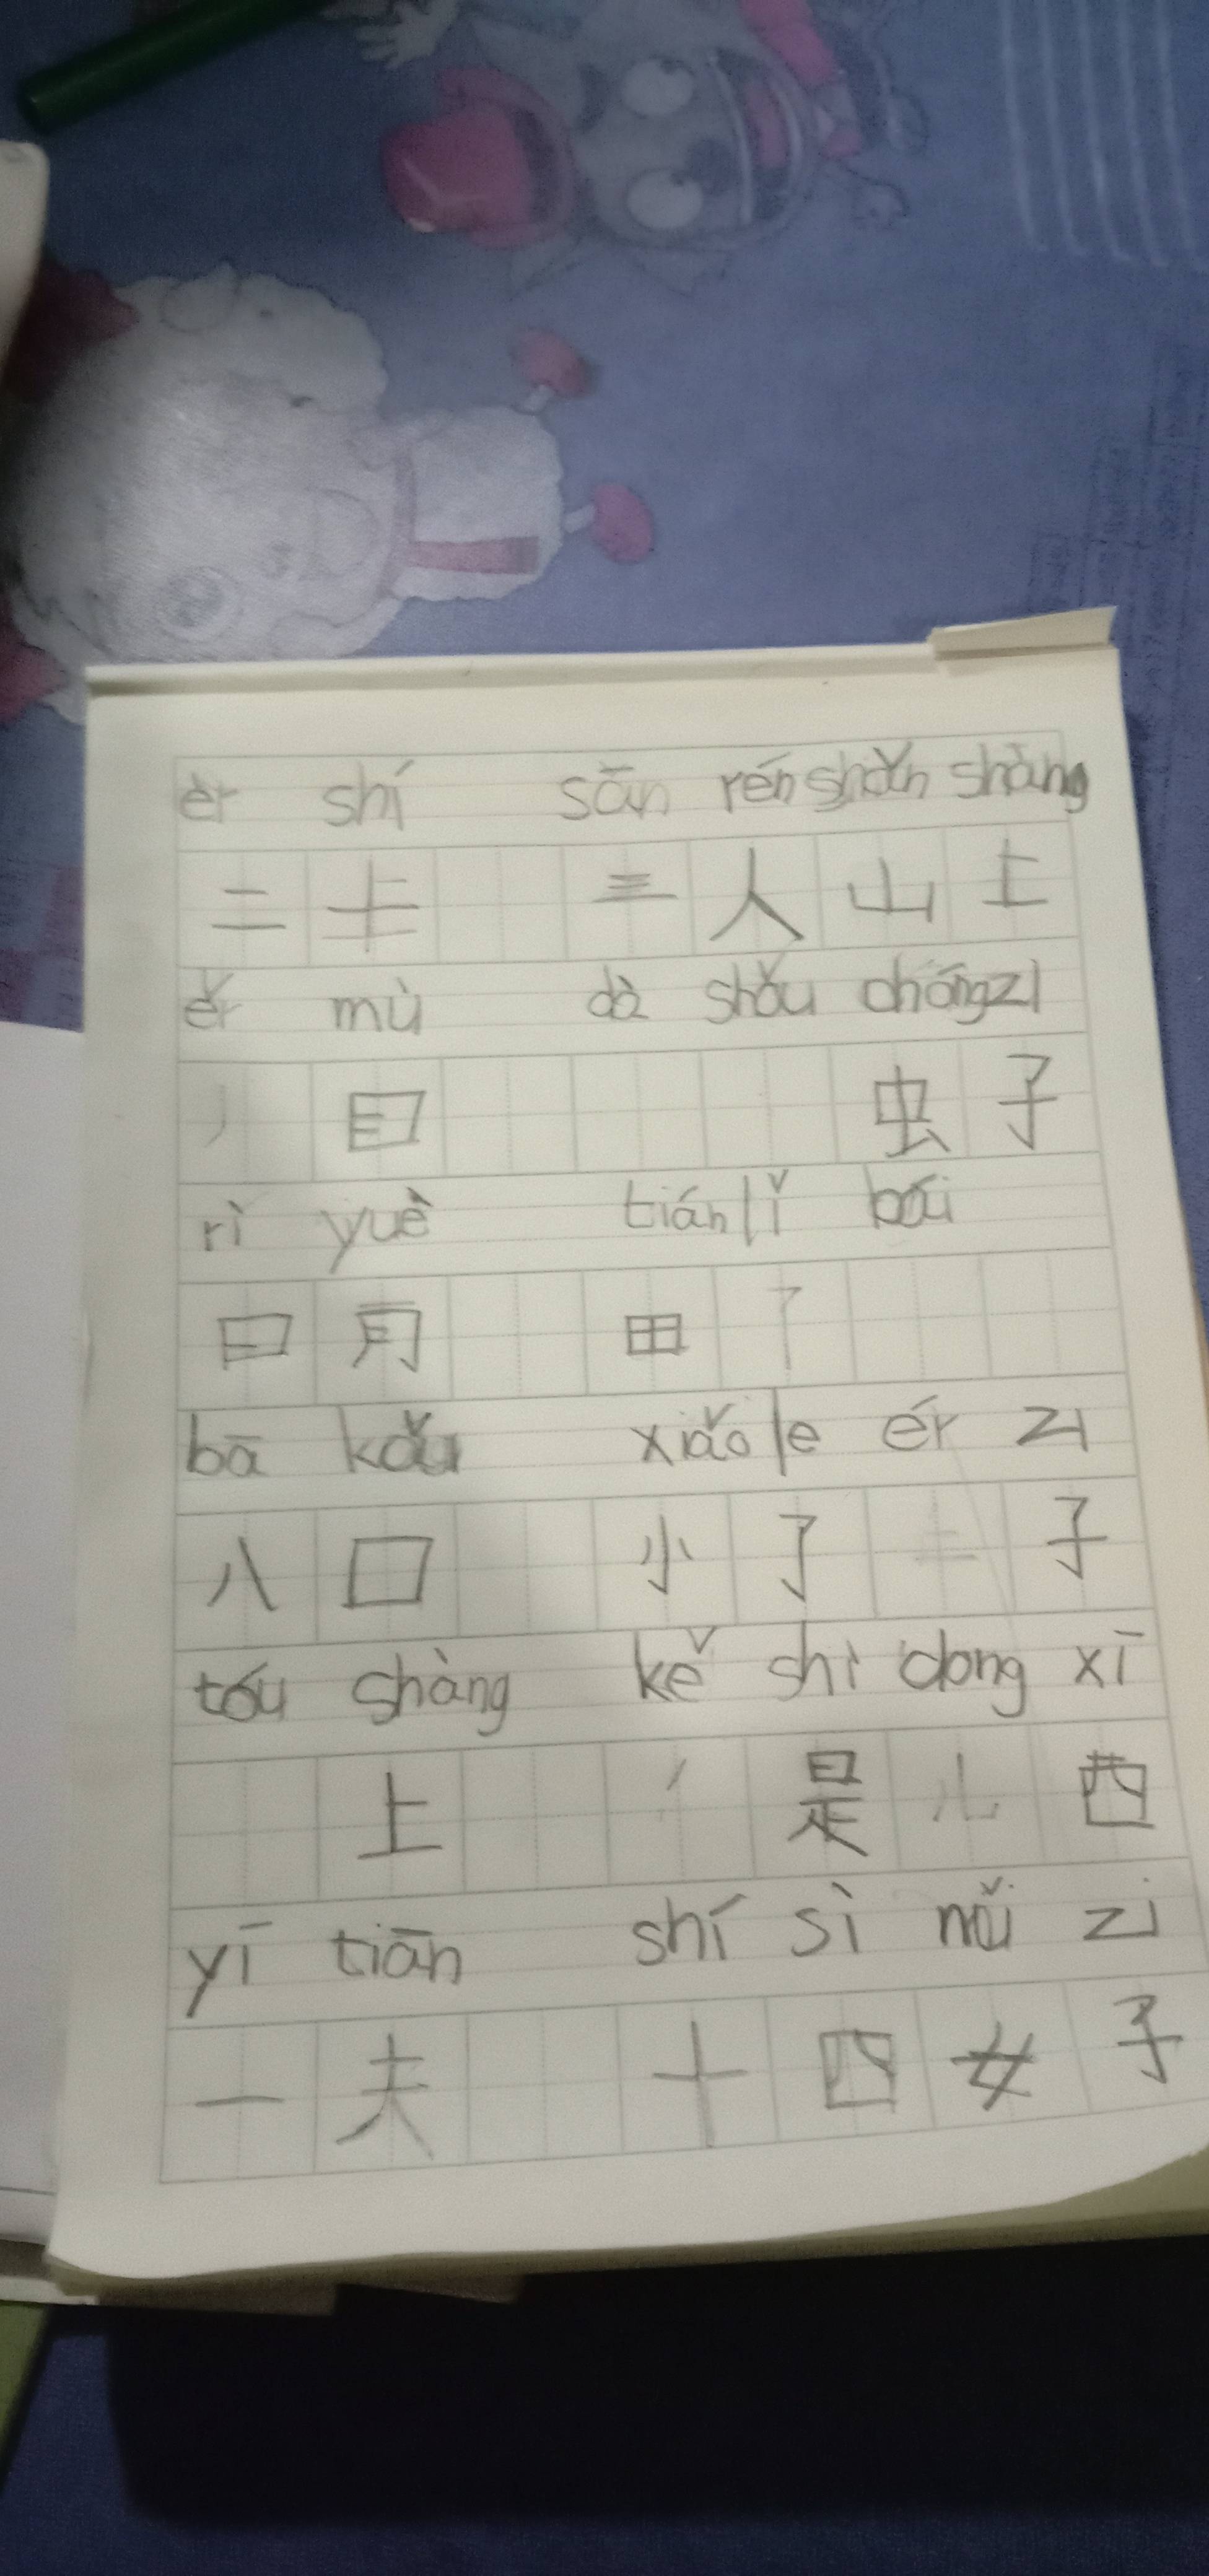 èr shí sān rén shǎn shàng
二 三 人 山 上
ěr mù dà shǒu chóngzi
目 虫 子
rì yuè tián lǐ bái
日 月 田
bā kǒu xiǎo le ér zi
八 口 小 了 子
tóu shàng kě shì dong xī
上 是 西
yī tiān shí sì nǚ zi
一 夫 十 四 女 子